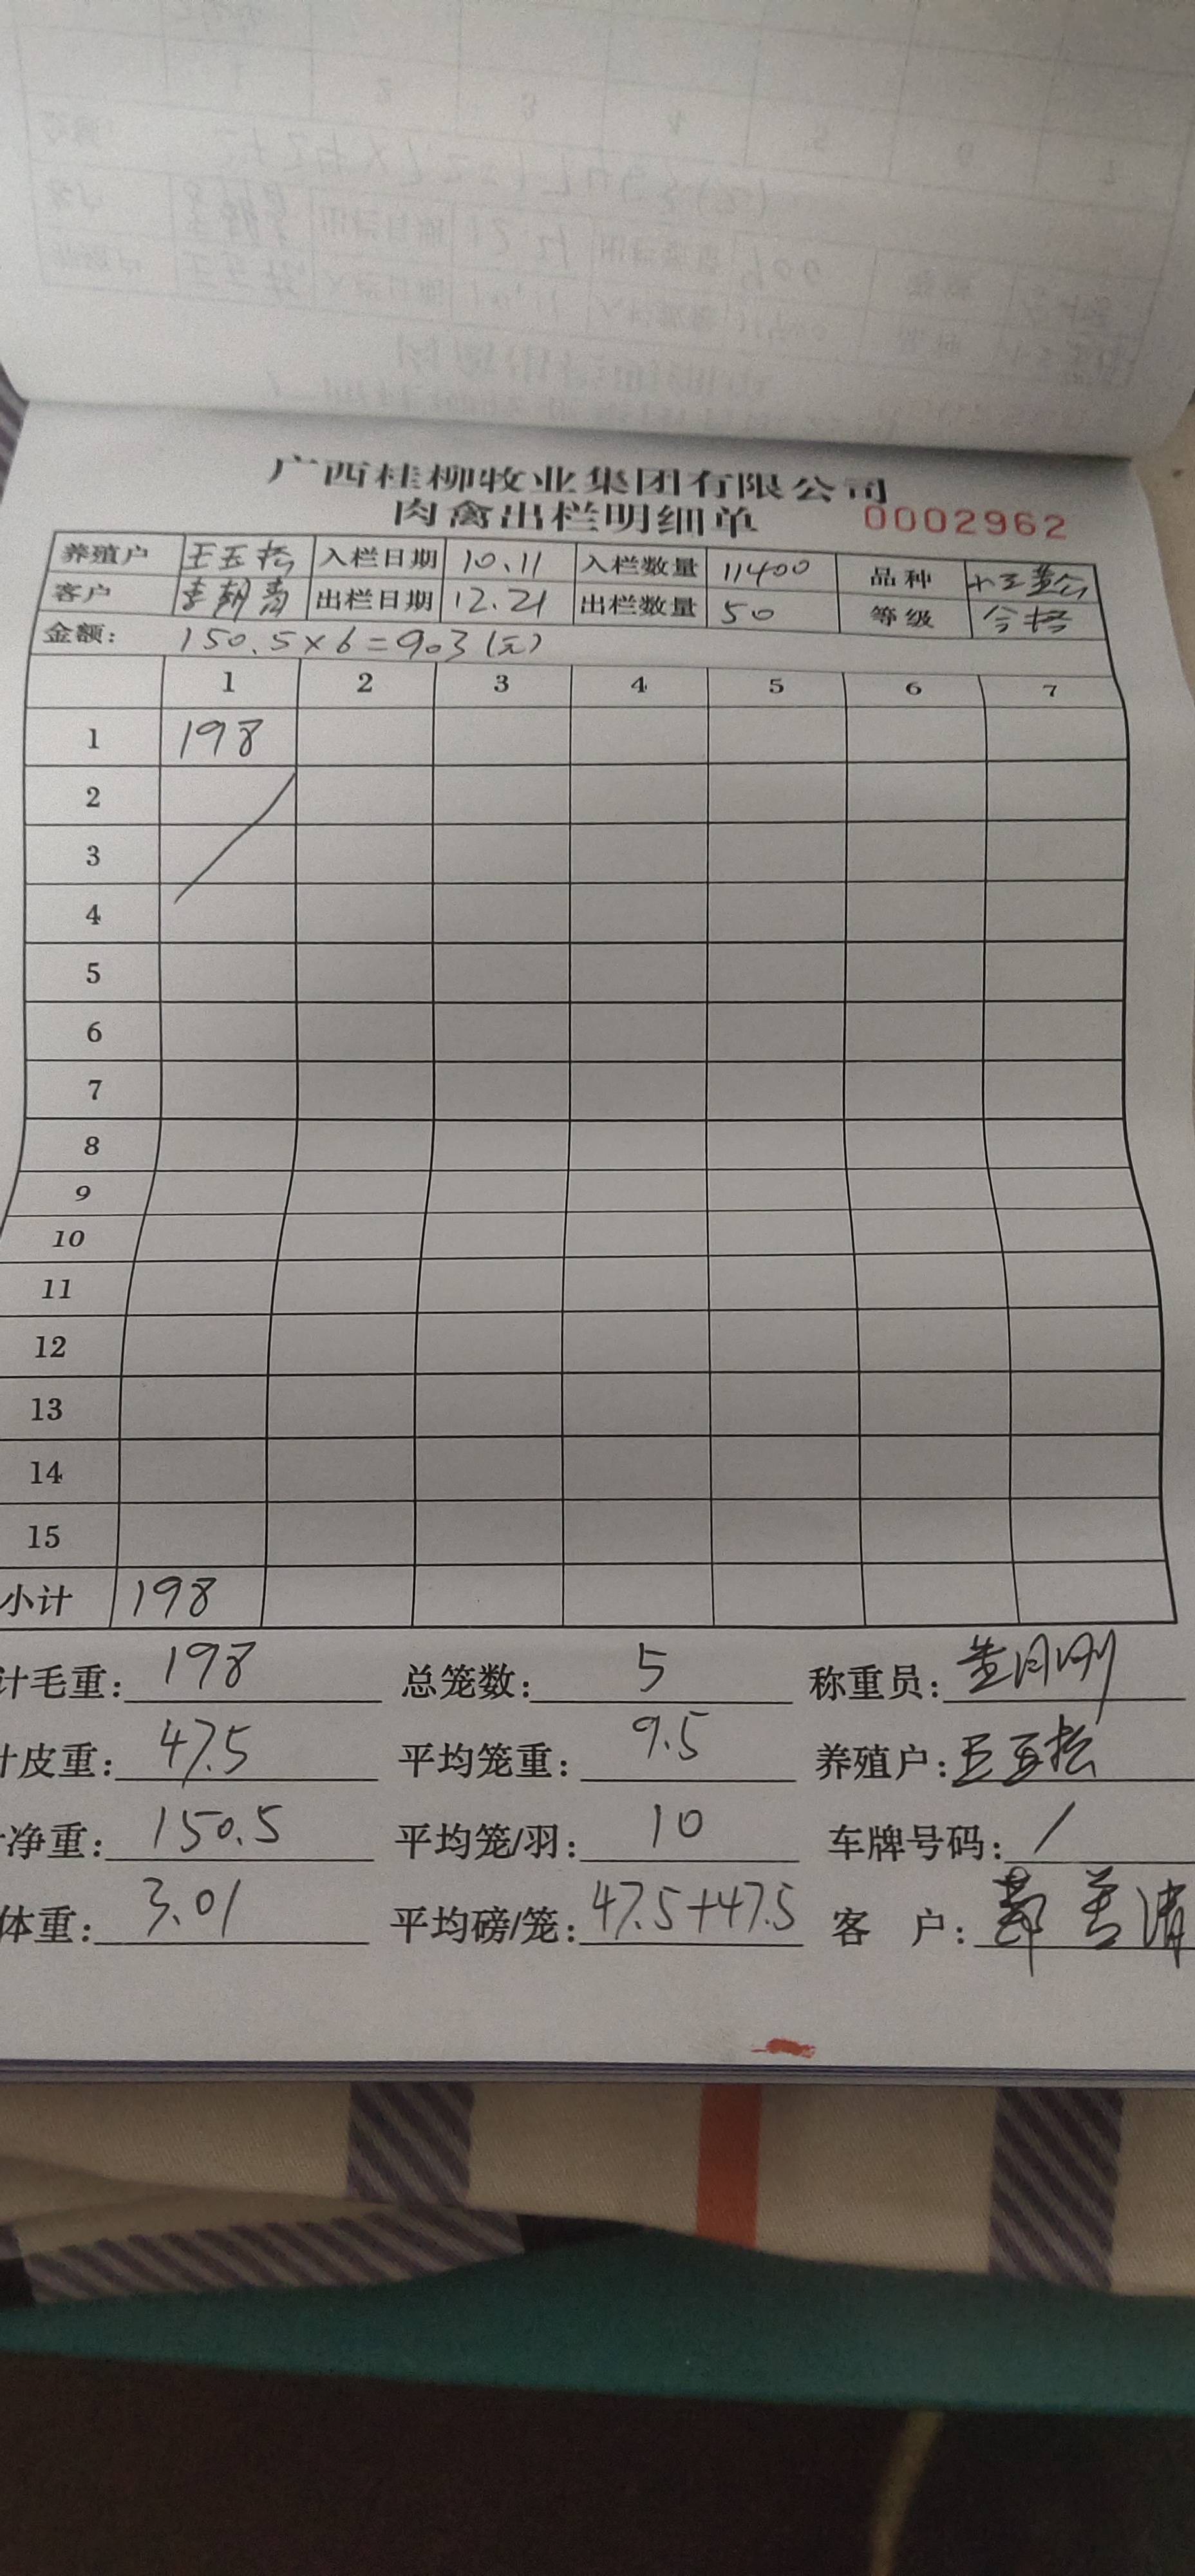 广西桂柳牧业集团有限公司
肉禽出栏明细单 0002962
养殖户 王玉松 入栏日期 10.11 入栏数量 11400 品种
客户 出栏日期 12.21 出栏数量 50 等级 合格
金额: 150.5×6=903(元)
1 2 3 4 5 6 7
1 198
2
3
4
5
6
7
8
9
10
11
12
13
14
15
小计 198
计毛重: 198 总笼数: 5 称重员:
皮重: 47.5 平均笼重: 9.5 养殖户: 王玉松
净重: 150.5 平均笼/羽: 10 车牌号码: /
体重: 3.01 平均磅/笼: 47.5+47.5 客 户: